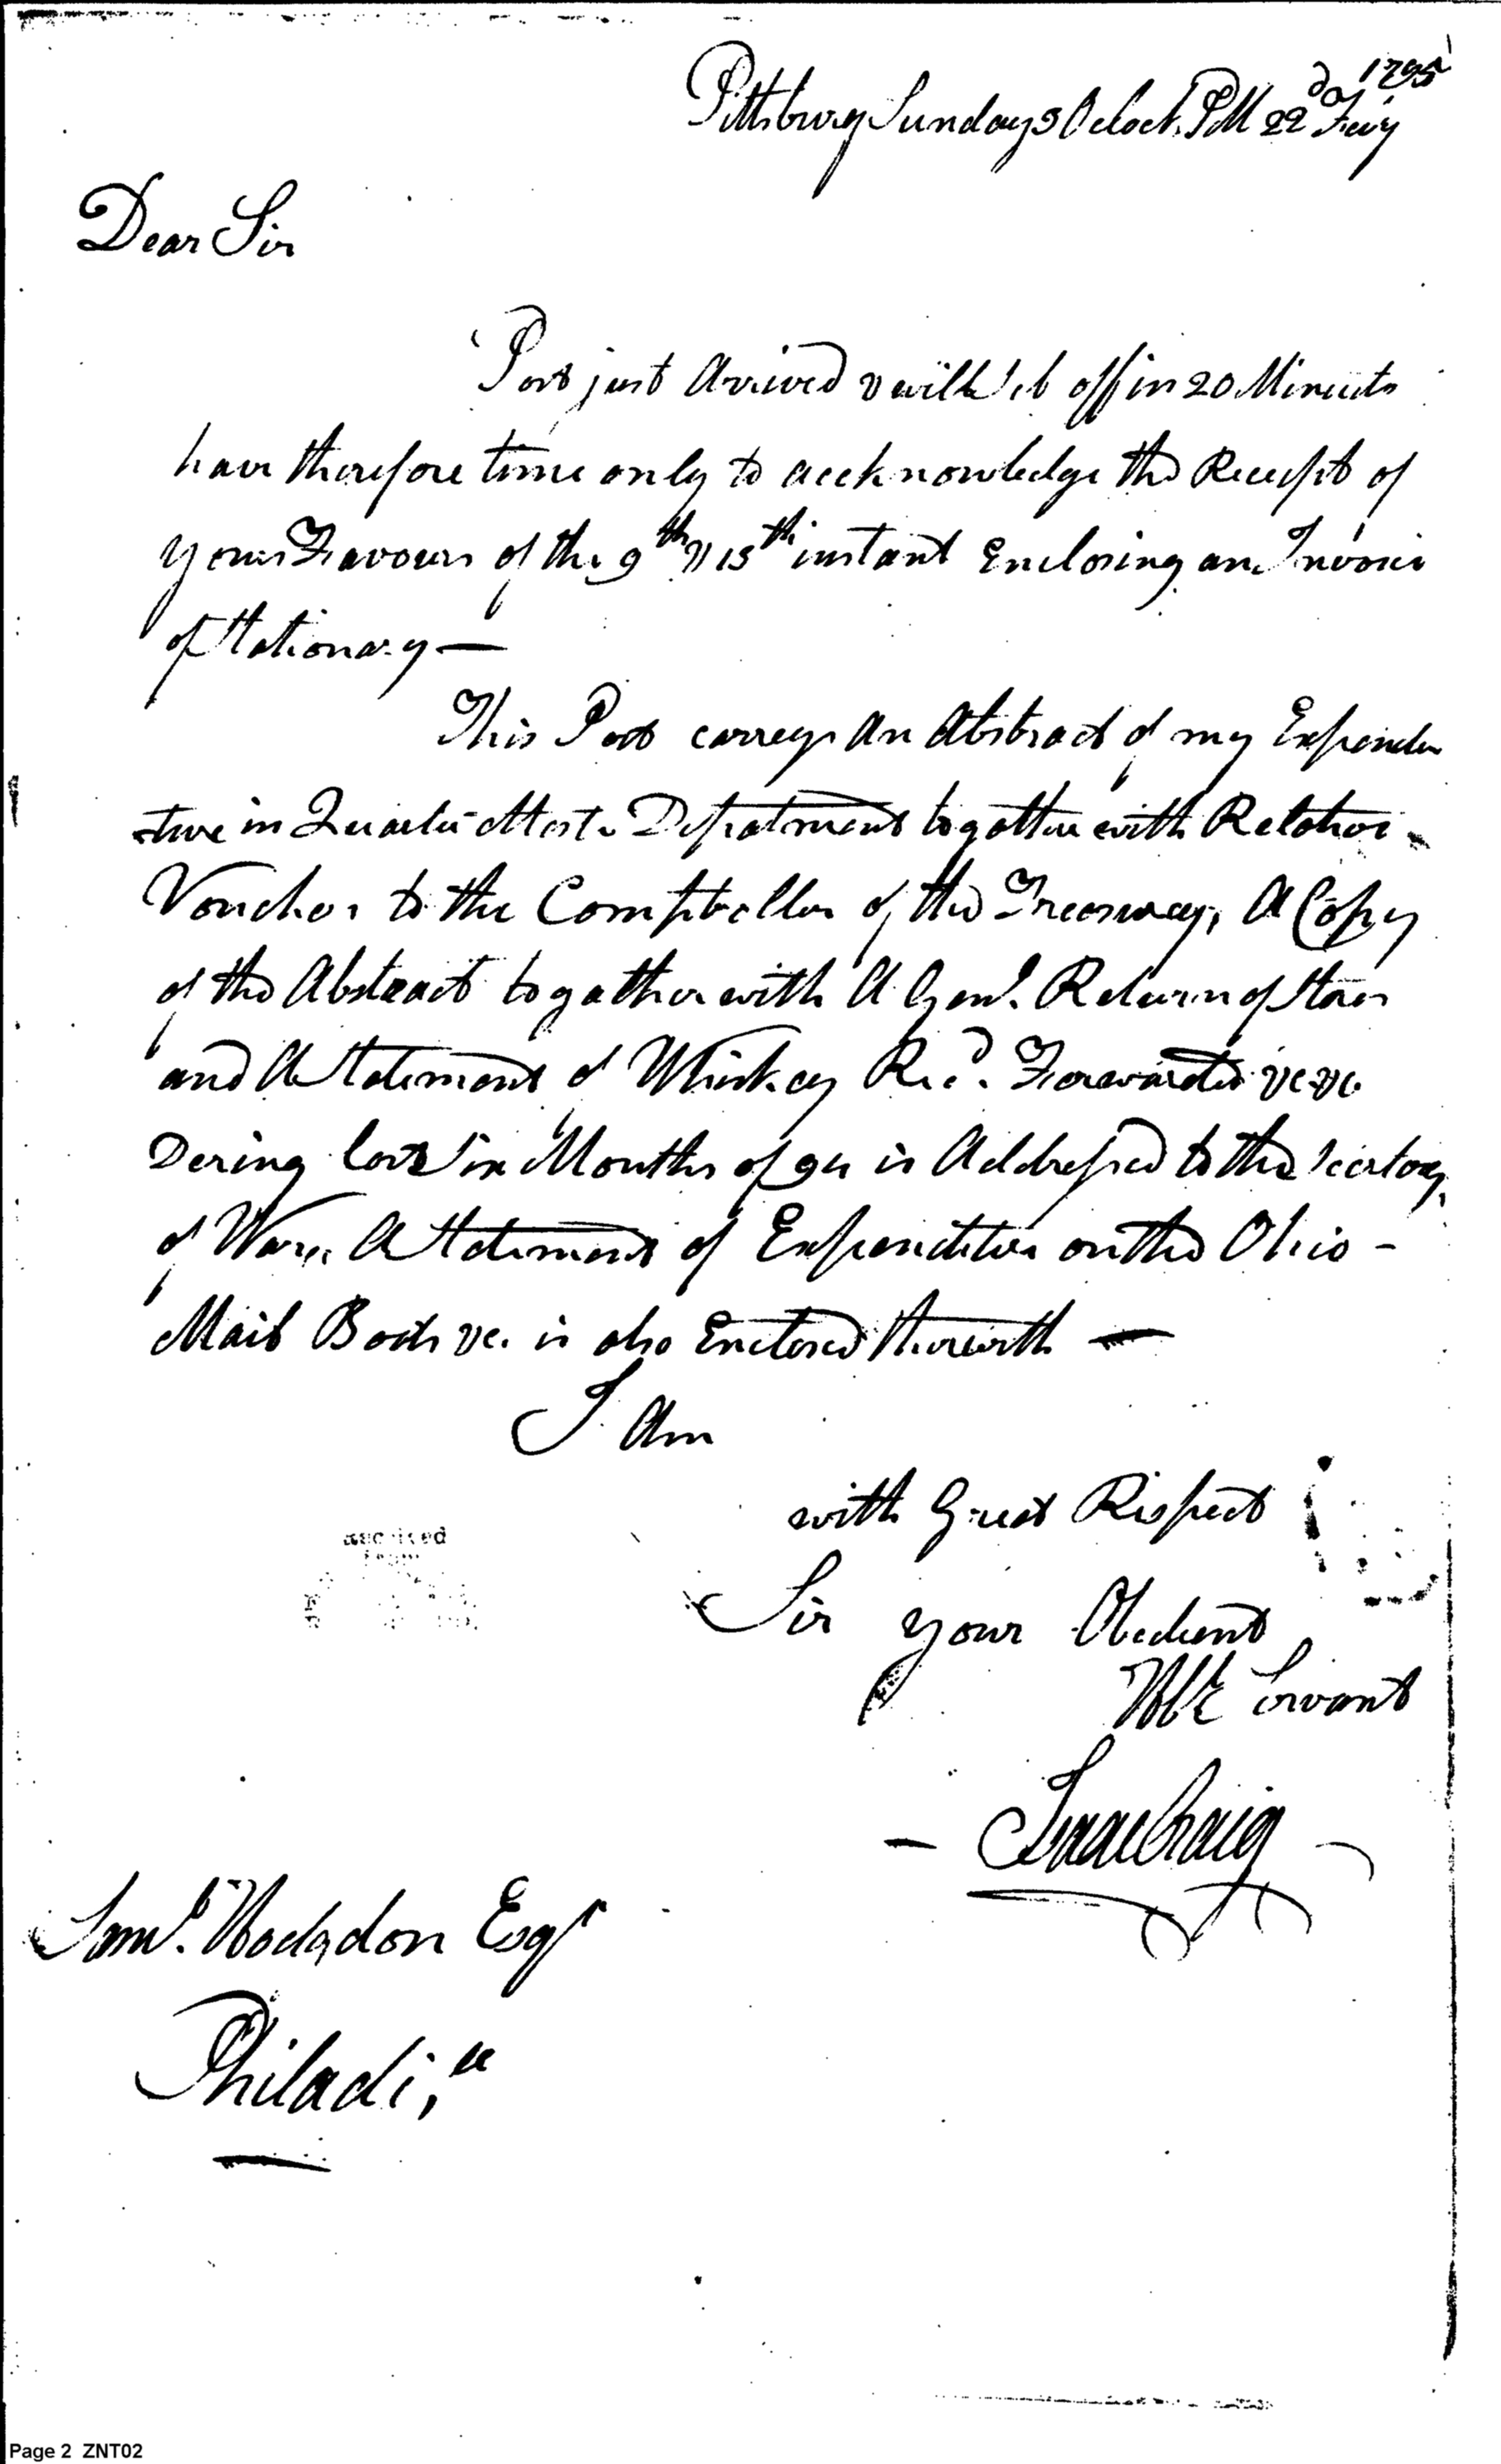 Pittsburg Sunday 3 Oclock PM 22d Feby 1795
Dear Sir
Post just Arrived & will Set off in 20 Minuets
have therefore time only to accknowledge the Receipt of
your Favours of the 9th & 13th instant Enclosing an Invoice
of Stationary —
This Post carreys An Abstract of my Expendi
-ture in Quarter Mastr Department togather with Relative
Vouchers to the Comptroller of the Treasurey, A Copy
of the Abstract togather with A Genl. Return of Stores
and A Statement of Whiskey Recd. Forewarded &c &c
Dering last Six Months of 94 is Addressed to the Secretary
of War, A Statement of Expenditure on the Ohio -
Mail Boats &c. is also Enclosed therewith —
I Am
with Great Respect
Sir your Obedient
Hble Servant
- Isaac Craig -
Saml. Hodgdon Esqr
Philadia
Page 2 ZNT02